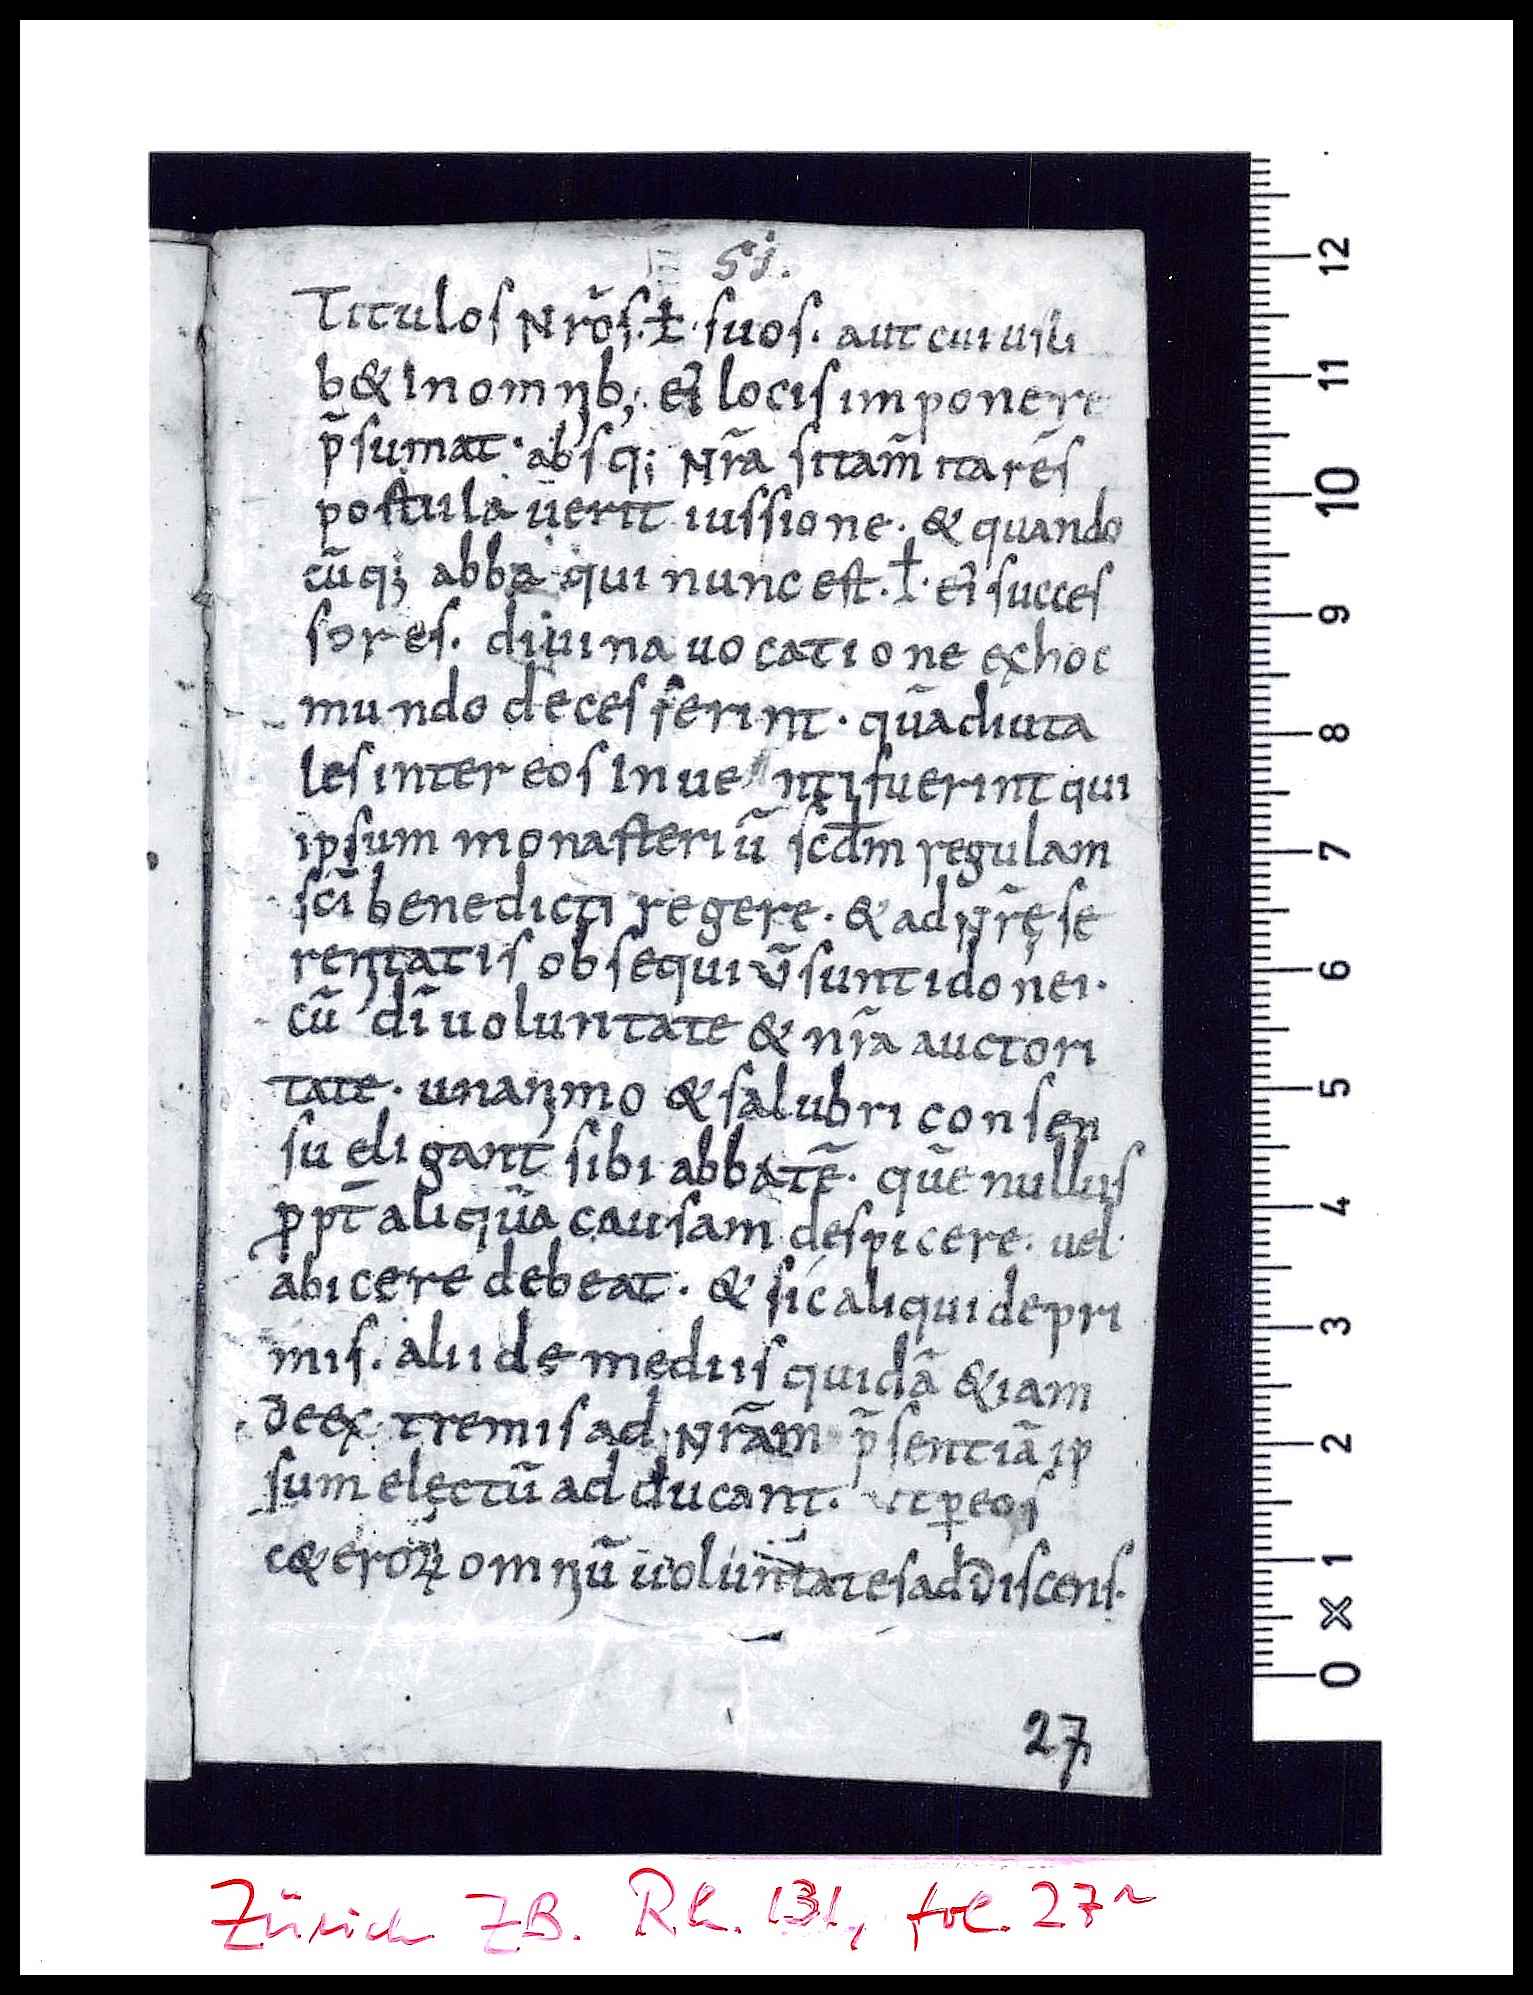 51.
Titulos nr̄os. ł. suos. aut cuiusli
b& in omnib; ei᷒ locis imponere
p̄sumat. absq; nr̄a si tam̄ ita rēs
postulauerit iussione. & quando
cūq; abba qui nunc est. ł. ei᷒ succes
sores. diuina uocatione exhoc
mundo decesserint. quādiuta
les inter eos inuenti fuerint qui
ipsum monasteriū scd̄m regulam
sc̄i benedicti regere. & ad nr̄ę se
renitatis obsequiū sunt idonei.
cū dī uoluntate & nr̄a auctori
tate. unanimo & salubri consen
su eligant sibi abbatē. quē nullus
ꝓpt̄ aliquā causam despicere. uel
abicere debeat. & sic aliqui depri
mis. alii de mediis quidā &iam
deex tremis ad nr̄am p̄sentiā ip
sum electū adducant. ut ꝑeos
c&eroꝝ omniū uoluntates addiscens.
27
Zürich ZB. Rh. 131, fol. 27r
12
11
10
9
8
7
6
5
4
3
2
1
0